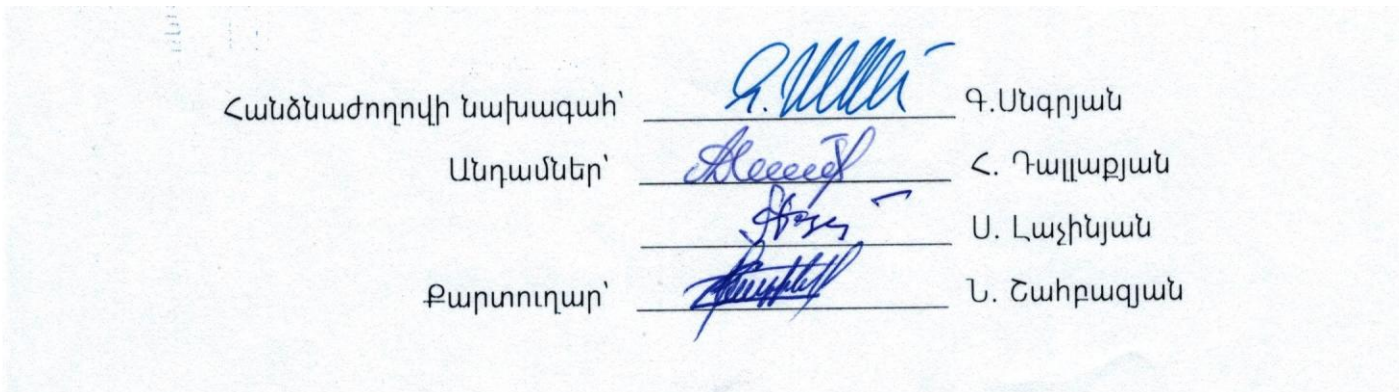 Հանձնաժողովի նախագահ՝ Գ.Սնգրյան
Անդամներ՝ Հ. Դալլաքյան
Ս. Լաչինյան
Քարտուղար՝ Ն. Շահբազյան